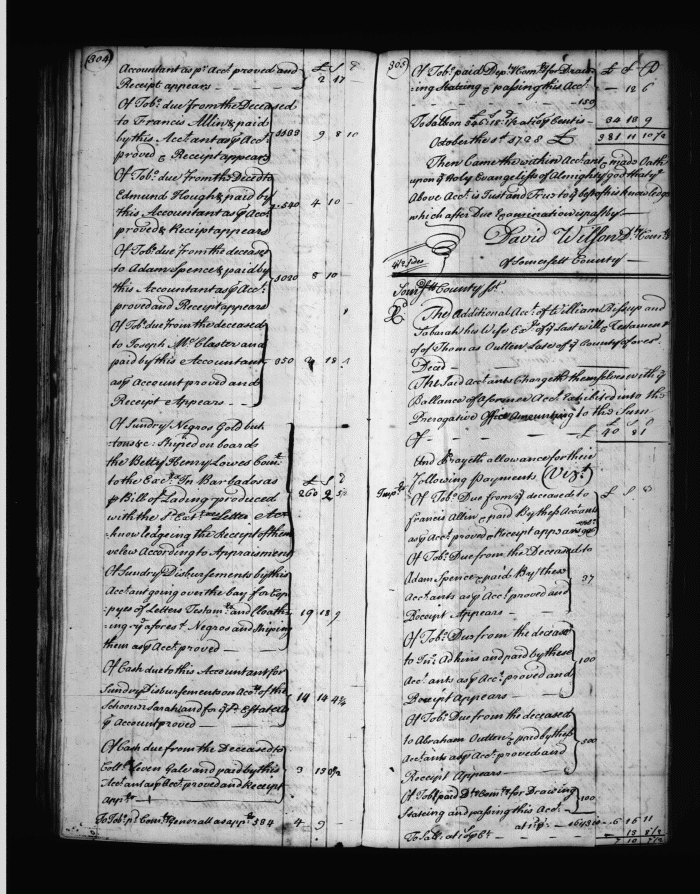 304
£ S D
Accountant as pr Acct proved and
Receipt appears — 2 17
Of Tobo due from the Deceased
to Francis Allin & paid
by this Acctant as pr Acct 1503 9 8 10
proved & Receipt appears
Of Tobo due from the Decd to
Edmund Hough & paid by
this Accountant as pr Acct 540 4 10
proved & Receipt appears
Of Tobo due from the deceasd
to Adam Spence & paid by 1020 8 10
this Accountant as pr Acct
proved and Receipt appears
Of Tobo due from the deceased
to Joseph McClaster and
paid by this Accountant 350 2 18 4
as pr Account proved and
Receipt Appears —
Of Sundry Negros Gold but
tons &c. Shiped on board
the Betty Henry Lowes Comr
to the Exct. In Barbados as £ S D
pr Bill of Lading produced 260 2
with the sd Exct Letter Ack
knowledgeing the Receipt of them
velew According to Appraisment
Of Sundry Disbursements by this
Acctant going over the bay for Cop
pyes of Letters Testamts and Cloath
ing ye aforest Negros and shiping 19 18 9
them as pr Acct proved —
Of Cash due to this Accountant for
Sundry Disbursements on Acct of the
Schooner Sarah and for ye sd Estate as 14 14
pr Account proved —
Of Cash due from the Deceased to
Collo Leven Gale and paid by this 3 13
Acctant as pr Acct proved and Receipt
apprs —
To Tobo pd Comry Generall as apprs 584 4 9
305
£ S D
Of Tobo paid Depty Comry for Draw-
ing Stateing & passing this Acct — 12 6
— 150
To Sall on at 10 pr Cent is — 34 18 9
October the 1st 1728 £ 381 11 10 1/2
Then Came the within Acctant & made Oath
upon ye Holy Evangelist of Almighty god that ye
Above Acct is Just and True to ye best of his knowledge
which after Due Examination is past by —
David Wilson D. Comry
Of Somersett County —
Somersett County Sct.
The Additional Acct of William and
Tabarah his Wife Exx of ye Last will & Testament
of Thomas Outten Late of ye County afores.
Decd —
The Said Acctants Chargeth themselves with ye
Ballance of A former Acct Exhibited into the
Prerogative Office Amounting to the Sum
Of — £ 40 8 1
And Prayeth allowance for their
following Payments (Vizt)
Imprs Of Tobo Due from ye deceased to £ S D
Francis Allin & paid By these Acctants
as pr Acct proved & Receipt appears
Of Tobo Due from the Deceased to
Adam Spence & paid By these
Acctants as pr Acct proved and 37
Receipt Appears —
Of Tobo Due from the deceasd
to Jno Adkins and paid by these
Acctants as pr Acct proved and 100
Receipt Appears —
Of Tobo Due from the deceased
to Abraham Outten & paid by these
Acctants as pr Acct proved and 500
Receipt Appears —
Of Tobo paid D. Comry for Drawing
Stateing and passing this Acct — 100
6 16 11
To Sall. at 10 pr Ct — 13 8 1/2
7 10 7 1/2